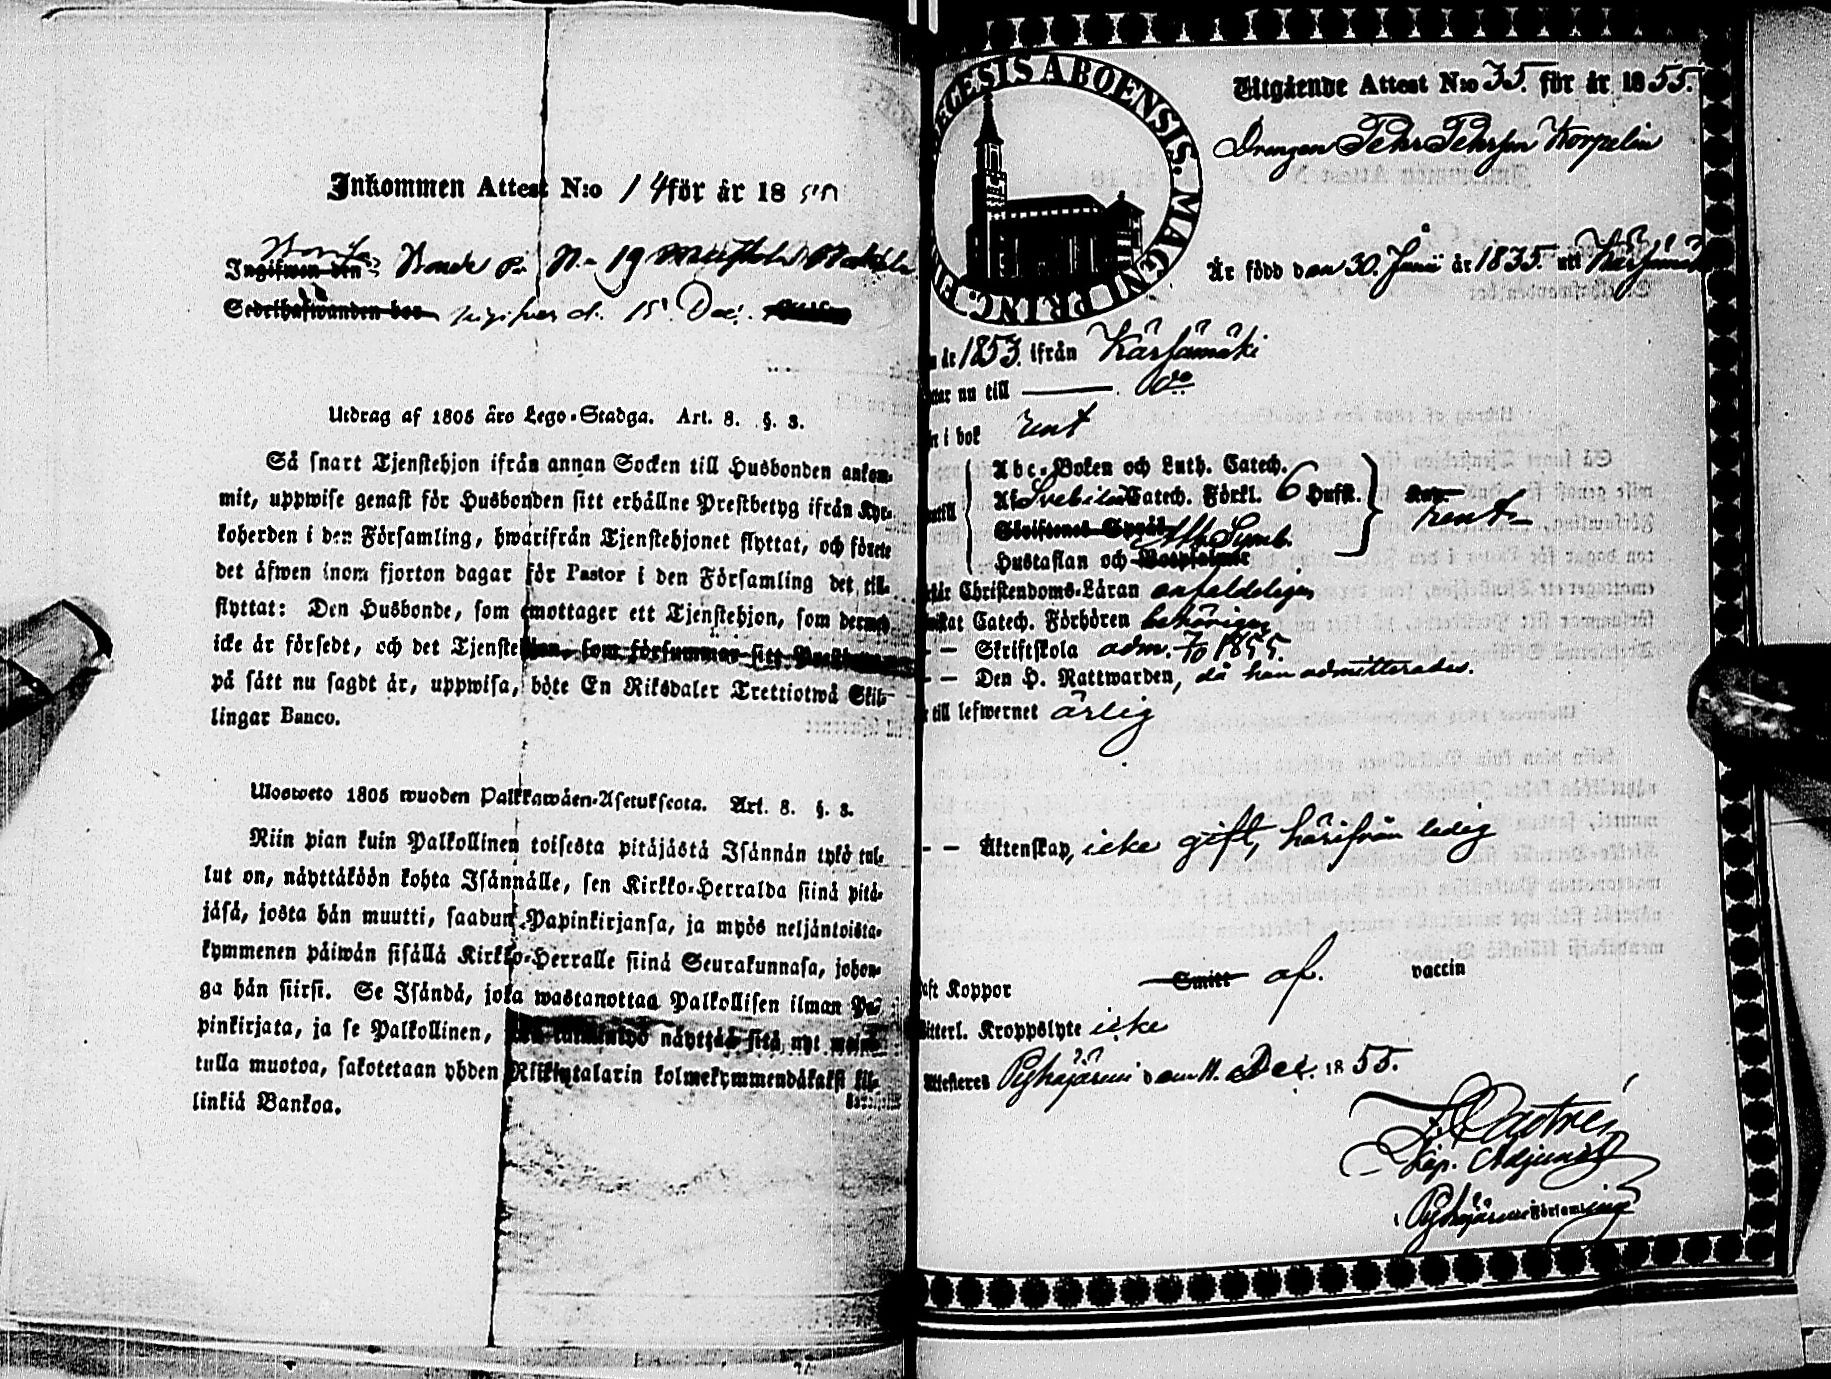 Inkommen Attest N:o 14 för år 18
Ingifwen den Bonde på N:o 19
Sedelhafwanden bor ingifven d. 15 Dec.
Utdrag af 1805 års Lego-Stadga. Art. 8. §. 3.
Så snart Tjenstehjon ifrån annan Socken till Husbonden ankom-
mit, uppwise genast för Husbonden sitt erhållne Prestbetyg ifrån Kyr-
koherden i den Församling, hwarifrån Tjenstehjonet flyttat, och förete
det äfwen inom fjorton dagar för Pastor i den Församling det till-
flyttat: Den Husbonde, som emottager ett Tjenstehjon, som dermed
icke är försedt, och det Tjenstehjon, som försummar sitt
på sätt nu sagdt är, uppwisa, böte En Riksdaler Trettiotwå Skil-
lingar Banco.
Ulosweto 1805 wuoden Palkkawäen-Asetuksesta. Art. 8. §. 3.
Niin pian kuin Palkollinen toisesta pitäjästä Isännän tykö tul-
lut on, näyttäköön kohta Isännälle, sen Kirkko-Herralda siinä pitä-
jäsä, josta hän muutti, saadun Papinkirjansa, ja myös neljäntoista-
kymmenen päiwän sisällä Kirkko-Herralle siinä Seurakunnasa, johon-
ga hän siirsi. Se Isändä, joka wastanottaa Palkollisen ilman Pa-
pinkirjata, ja se Palkollinen, näyttää sitä nyt
tulla muotoa, sakotetaan yhden Riikintalarin kolmekymmendäkaksi kil-
linkiä Bankoa.
ECESIS ABOENSIS. MAGNI PRINC.
Utgående Attest N:o 35. för år 1855.
Drengen Pehr Pehrsson Korpelin
Är född den 30. Juni år 1835. uti Kärsämäki
år 1853. ifrån Kärsämäki
nu till d:o
i bok rent
Abc-Boken och Luth. Catech.
Af Svebilii Catech. Förkl. 6 Hufst. rent
Ath. Symb.
Hustaflan och
Christendoms-Läran enfaldeligen
Catech. Förhören behörigen
– – Skriftskola adm. 7/10 1855.
– – Den H. Nattwarden, då han admitterades.
till lefwernet ärlig
– – Äktenskap, icke gift, härifrån ledig
Koppor Smitt af. vaccin
Kroppslyte icke
Attesteras Pyhäjärwi den 11. Dec. 1855.
Castrén
Kap. Adjunct
i Pyhäjärwi Församling